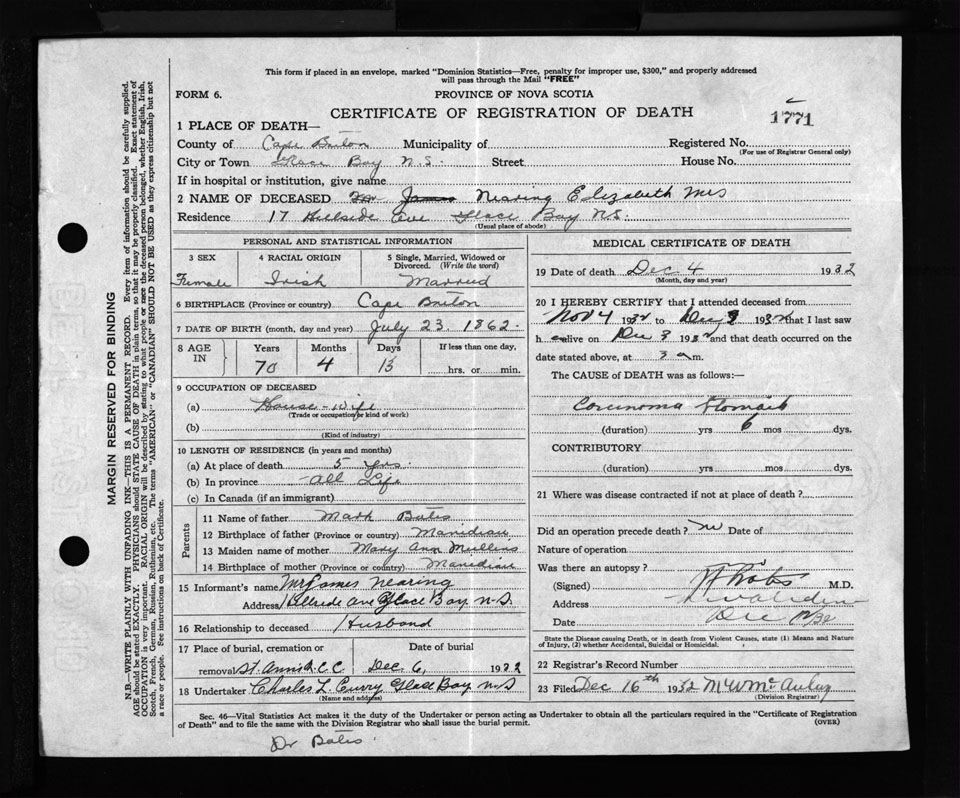 This form if placed in an envelope, marked "Dominion Statistics—Free, penalty for improper use, $300," and properly addressed
will pass through the Mail "FREE"
FORM 6.
PROVINCE OF NOVA SCOTIA
CERTIFICATE OF REGISTRATION OF DEATH
1771
1 PLACE OF DEATH—
County of Cape Breton Municipality of Registered No.
(For use of Registrar General only)
City or Town Glace Bay N.S. Street House No.
If in hospital or institution, give name
2 NAME OF DECEASED James Nearing Elizabeth Mrs
Residence 17 Hillside Ave Glace Bay N.S.
(Usual place of abode)
PERSONAL AND STATISTICAL INFORMATION
3 SEX 4 RACIAL ORIGIN 5 Single, Married, Widowed or
Divorced. (Write the word)
Female Irish Married
6 BIRTHPLACE (Province or country) Cape Breton
7 DATE OF BIRTH (month, day and year) July 23. 1862.
8 AGE IN Years Months Days If less than one day,
70 4 15 hrs. or min.
9 OCCUPATION OF DECEASED
(a) House-wife
(Trade or occupation or kind of work)
(b)
(Kind of industry)
10 LENGTH OF RESIDENCE (in years and months)
(a) At place of death 5 yrs.
(b) In province All Life
(c) In Canada (if an immigrant)
Parents
11 Name of father Mark Bates
12 Birthplace of father (Province or country)
13 Maiden name of mother Mary Ann Mullins
14 Birthplace of mother (Province or country)
15 Informant's name Mr James Nearing
Address Hillside Ave Glace Bay N.S.
16 Relationship to deceased Husband
17 Place of burial, cremation or Date of burial
removal St. Anns R.C.C Dec 6, 1932
18 Undertaker Charles L Curry Glace Bay N.S
(Name and address)
MEDICAL CERTIFICATE OF DEATH
19 Date of death Dec 4 1932
(Month, day and year)
20 I HEREBY CERTIFY that I attended deceased from
Nov 4 1932 to Dec 3 1932 that I last saw
h er alive on Dec 3 1932 and that death occurred on the
date stated above, at 3 a m.
The CAUSE OF DEATH was as follows:—
Carcinoma Stomach
(duration) yrs 6 mos dys.
CONTRIBUTORY
(duration) yrs mos dys.
21 Where was disease contracted if not at place of death?
Did an operation precede death? no Date of
Nature of operation
Was there an autopsy?
(Signed) M.D.
Address
Date Dec
State the Disease causing Death, or in death from Violent Causes, state (1) Means and Nature
of Injury, (2) whether Accidental, Suicidal or Homicidal.
22 Registrar's Record Number
23 Filed Dec 16th 1932
(Division Registrar)
Sec. 46—Vital Statistics Act makes it the duty of the Undertaker or person acting as Undertaker to obtain all the particulars required in the "Certificate of Registration
of Death" and to file the same with the Division Registrar who shall issue the burial permit. (OVER)
Dr Bates
MARGIN RESERVED FOR BINDING
N.B.—WRITE PLAINLY WITH UNFADING INK—THIS IS A PERMANENT RECORD. Every item of information should be carefully supplied.
AGE should be stated EXACTLY. PHYSICIANS should STATE CAUSE OF DEATH in plain terms, so that it may be properly classified. Exact statement of
OCCUPATION is very important. RACIAL ORIGIN will be described by stating to what people or race the deceased person belonged, whether English, Irish,
Scotch, French, German, Russian, Ruthenian, etc. The terms "AMERICAN" or "CANADIAN" SHOULD NOT BE USED as they express citizenship but not
a race or people. See instructions on back of Certificate.